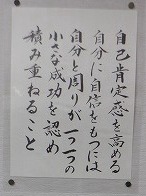 自己肯定感を高める
自分に自信をもつには
自分と周りが一つ一つの
小さな成功を認め
積み重ねること